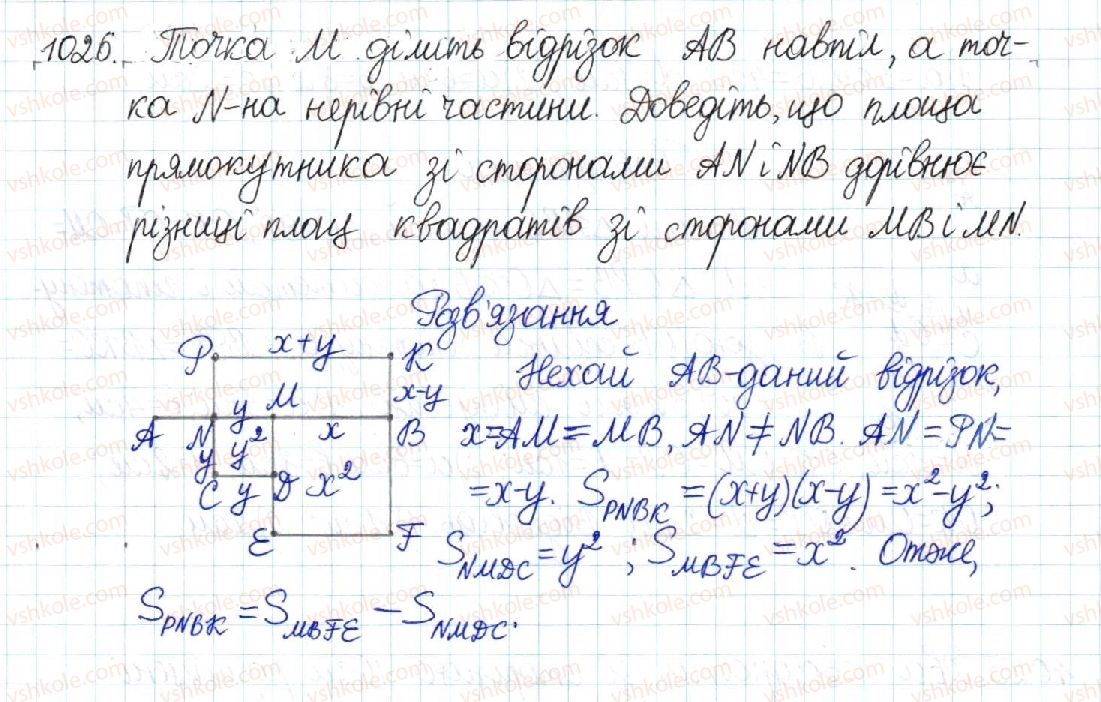 1026. Точка M ділить відрізок AB навпіл, а точ-
ка N-на нерівні частини. Доведіть, що площа
прямокутника зі сторонами AN і NB дорівнює
різниці площ квадратів зі сторонами MB і MN.
Розв'язання
P x+y K
x-y
A N y M x B
y y² x²
C y D
E F
Нехай AB-даний відрізок,
x=AM=MB, AN≠NB. AN=PN=
=x-y. S_PNBK=(x+y)(x-y)=x²-y²;
S_NMDC=y²; S_MBFE=x². Отже,
S_PNBK=S_MBFE-S_NMDC.